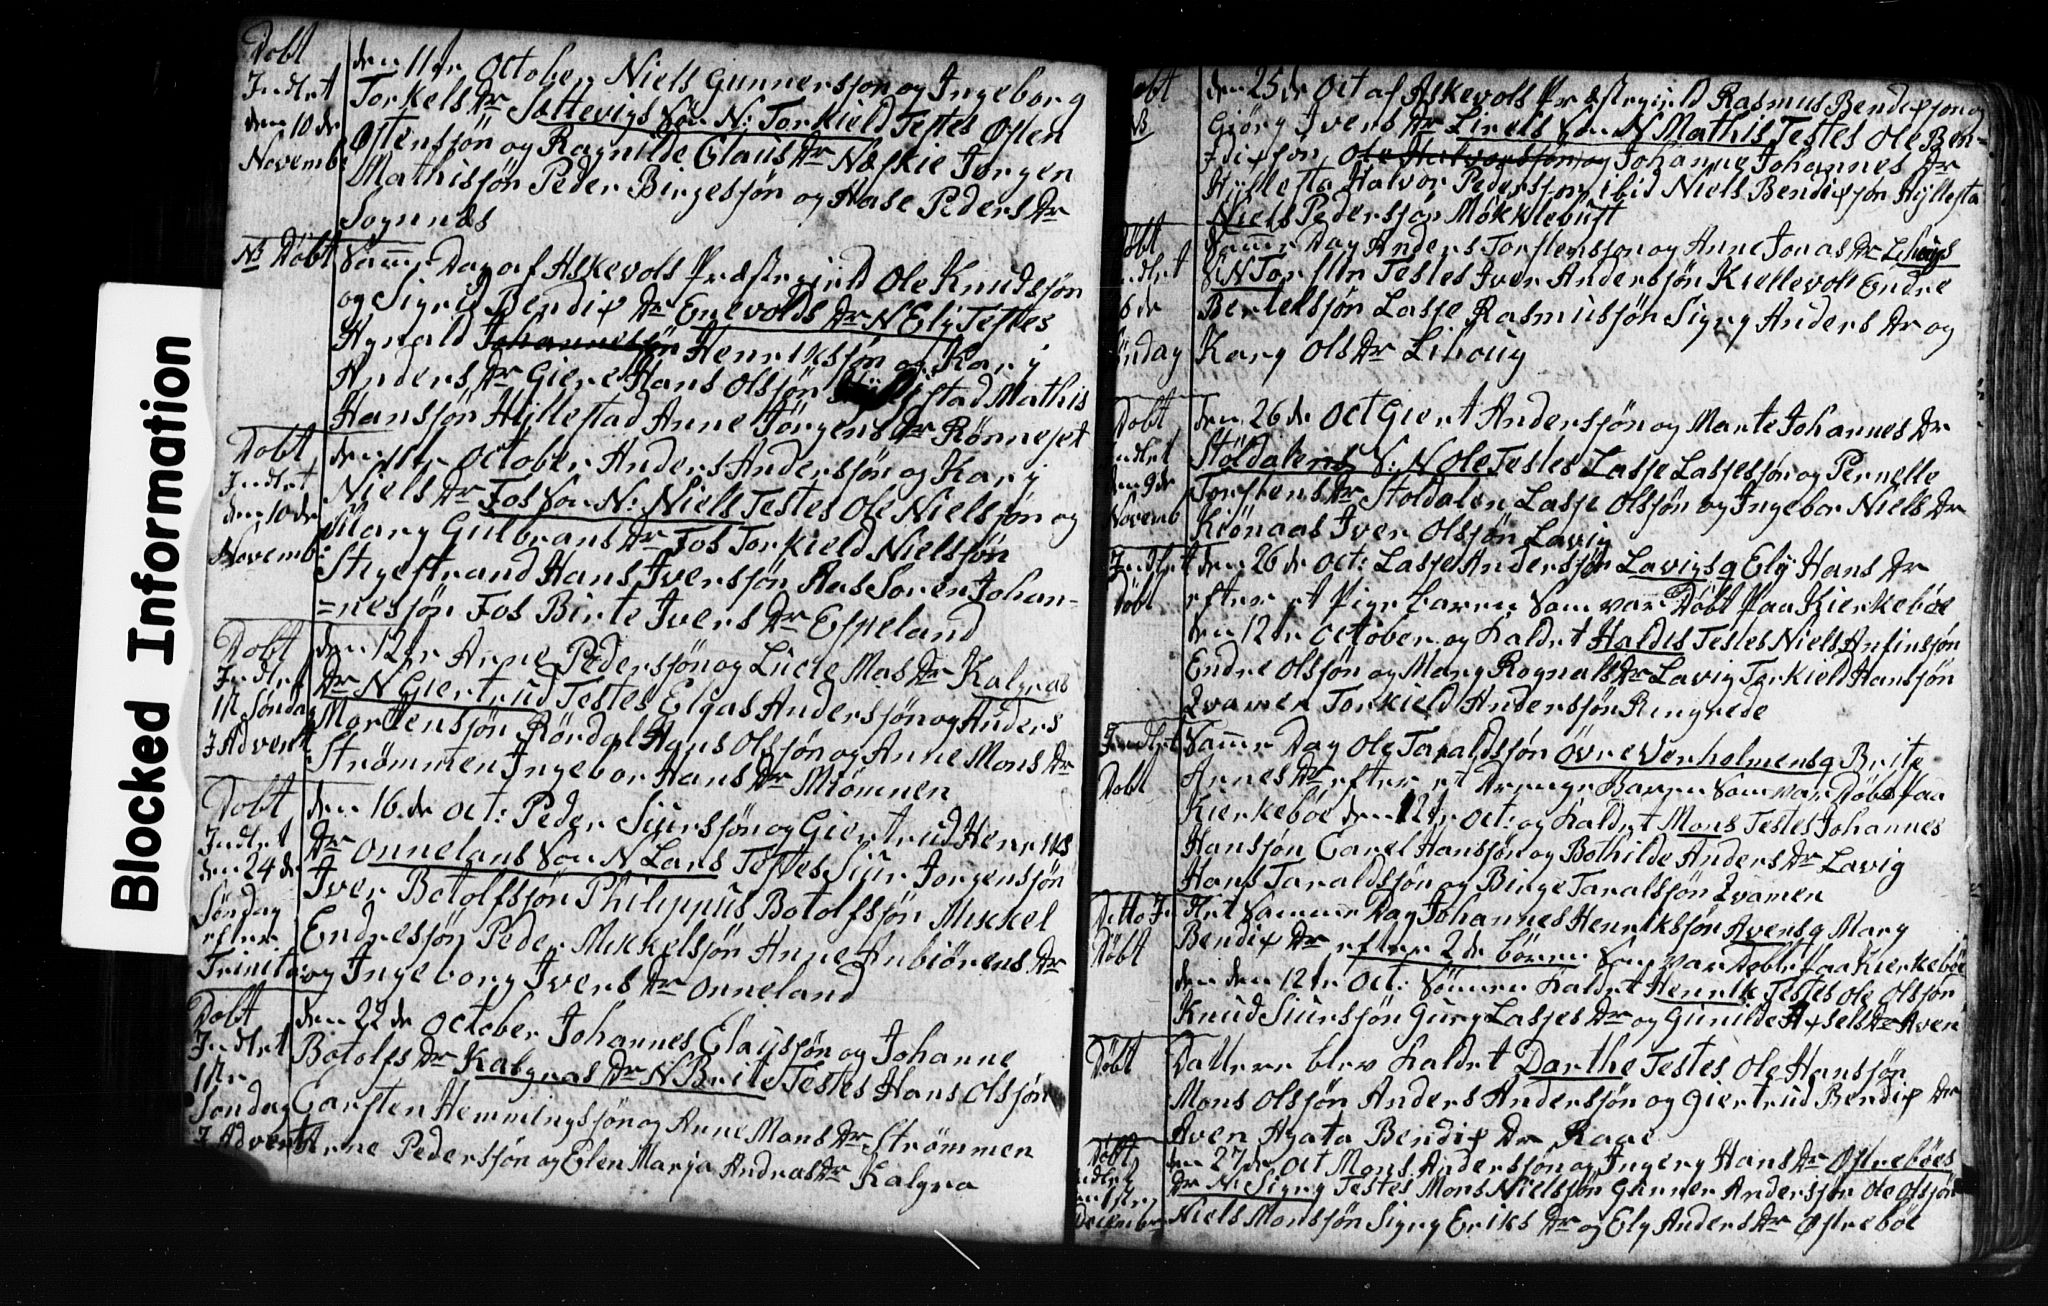 Blocked Information
Døbt den 11te October Niels Gunnersøn og Ingeborg
Indlet Torkels Dr Søttevigs Søn N: Torkield Testes Østen
den 10de Østensøn og Ragnilde Claus Dr Næskie Jørgen
Novemb: Mathisøn Peder Birgesøn og Aase Peders Dr
Sognnæs
NB Døbt Samme Dag af Askevols Præstegield Ole Knudsøn
og Sigrid Bendix Dr Enevolds Dr N Ely Testes
Agnald Johannesøn Henriksøn og Kary
Anders Dr Giere Hans Olsøn Mathis
Hansøn Hyllestad Anne Jørgens Dr Rønneset
Døbt den 11te October Anders Andersøn og Kary
Indlet Niels Dr Fos Søn N: Niels Testes Ole Nielsøn og
den 10de Mary Gulbrans Dr Fos Torkield Nielsøn
Novemb: Stigestrand Hans Iversøn Aas Søren Johan-
=nesøn Fos Birte Ivers Dr Espeland
Døbt den 12te Arne Pedersøn og Lucie Mas Dr Kalgras
Indlet Dr N Giertrud Testes Elgas Andersøn og Anders
1te Søndag Mortensøn Rørdal Hans Olsøn og Anne Mons Dr
I Advent Strømmen Ingebor Hans Dr Miømnen
Døbt den 16de Oct: Peder Siursøn og Giertrud Henriks
Indlet Dr Onnelans Søn N Lars Testes Siur Jorgensøn
den 24de Iver Botolfsøn Philippus Botolfsøn Mikkel
Søndag Endresøn Peder Mikkelsøn Anne Anbiørens Dr
efter
Trinitat: og Ingeborg Ivers Dr Onneland
Døbt den 22de October Johannes Clausøn og Johanne
Indlet Botolfs Dr Kalgras Dr N Brite Testes Hans Olsøn
1te
Søndag Carsten Hemmingsøn og Anne Mons Dr Strømmen
I Advent Arne Pedersøn og Elen Marja Andreas Dr Kalgra
Døbt den 25de Oct af Askevols Præstegield Rasmus Bendixsøn og
NB Giørg Ivers Dr Søn N Mathis Testes Ole Ben-
dixsøn, Ole Halvorsøn og Johanne Johannes Dr
Hyllesta Halvor Pedersøn ibid Niels Bendixsøn Hyllesta
Niels Pedersøn Møkklebust
Døbt Samme Dag Anders Torstensøn og Anne Jonas Dr Lihougs
Indlet S: N Torsten Testes Iver Andersøn Kiellevoll Endre
6de Bertelsøn Lasse Rasmusøn Sigry Anders Dr og
Søndag Kary Ols Dr Lihoug
Døbt den 26de Oct Giert Andersøn og Marte Johannes Dr
Indlet Støldalens S: N Ole Testes Lasse Lassesøn og Pernelle
den 9de Torstens Dr Støldalen Lasse Olsøn og Ingebor Niels Dr
Novemb Kiønaas Iver Olsøn Lavig
Indlet den 26de Oct: Lasse Andersøn Lavigs q Ely Hans Dr
Døbt efter et Pigebarn som var Døbt paa Kierkebøe
den 12te October og kaldet Haldis Testes Niels Anfinsøn
Endre Olsøn og Mary Rognalls Dr Lavig Torkield Hansøn
Qvamen Torkield Andersøn Ringrede
Indlet Samme Dag Ole Taraldsøn Øvre Werholmens q Brite
Døbt Arnes Dr efter et Drenge Barn som var Døbt paa
Kierkebøe den 12te Oct: og kaldet Mons Testes Johannes
Hansøn Carel Hansøn og Bothilde Anders Dr Lavig
Hans Taraldsøn og Birge Taralsøn Qvamen
Ditto Indlet Samme Dag Johannes Henriksøn Avens q Mary
Døbt Bendix Dr efter 2de børn som var Døbt paa Kierkebøe
den den 12te Oct: Sønnen kaldet Henrik Testes Ole Olsøn
Knud Siursøn Gury Lasses Dr og Gunilde Axsels Dr Aven
Døbt Datteren blev kaldet Darthe Testes Ole Hansøn
Mons Olsøn Anders Andersøn og Giertrud Bendix Dr
Aven Agata Bendix Dr Raae
Døbt den 27de Oct Mons Andersøn og Ingery Hans Dr Østrebøes
Indlet Dr N: Sigry Testes Mons Nielsøn Gunner Andersøn Ole Olsøn
Decemb Niels Monsøn Sigry Eriks Dr og Ely Anders Dr Østrebøe